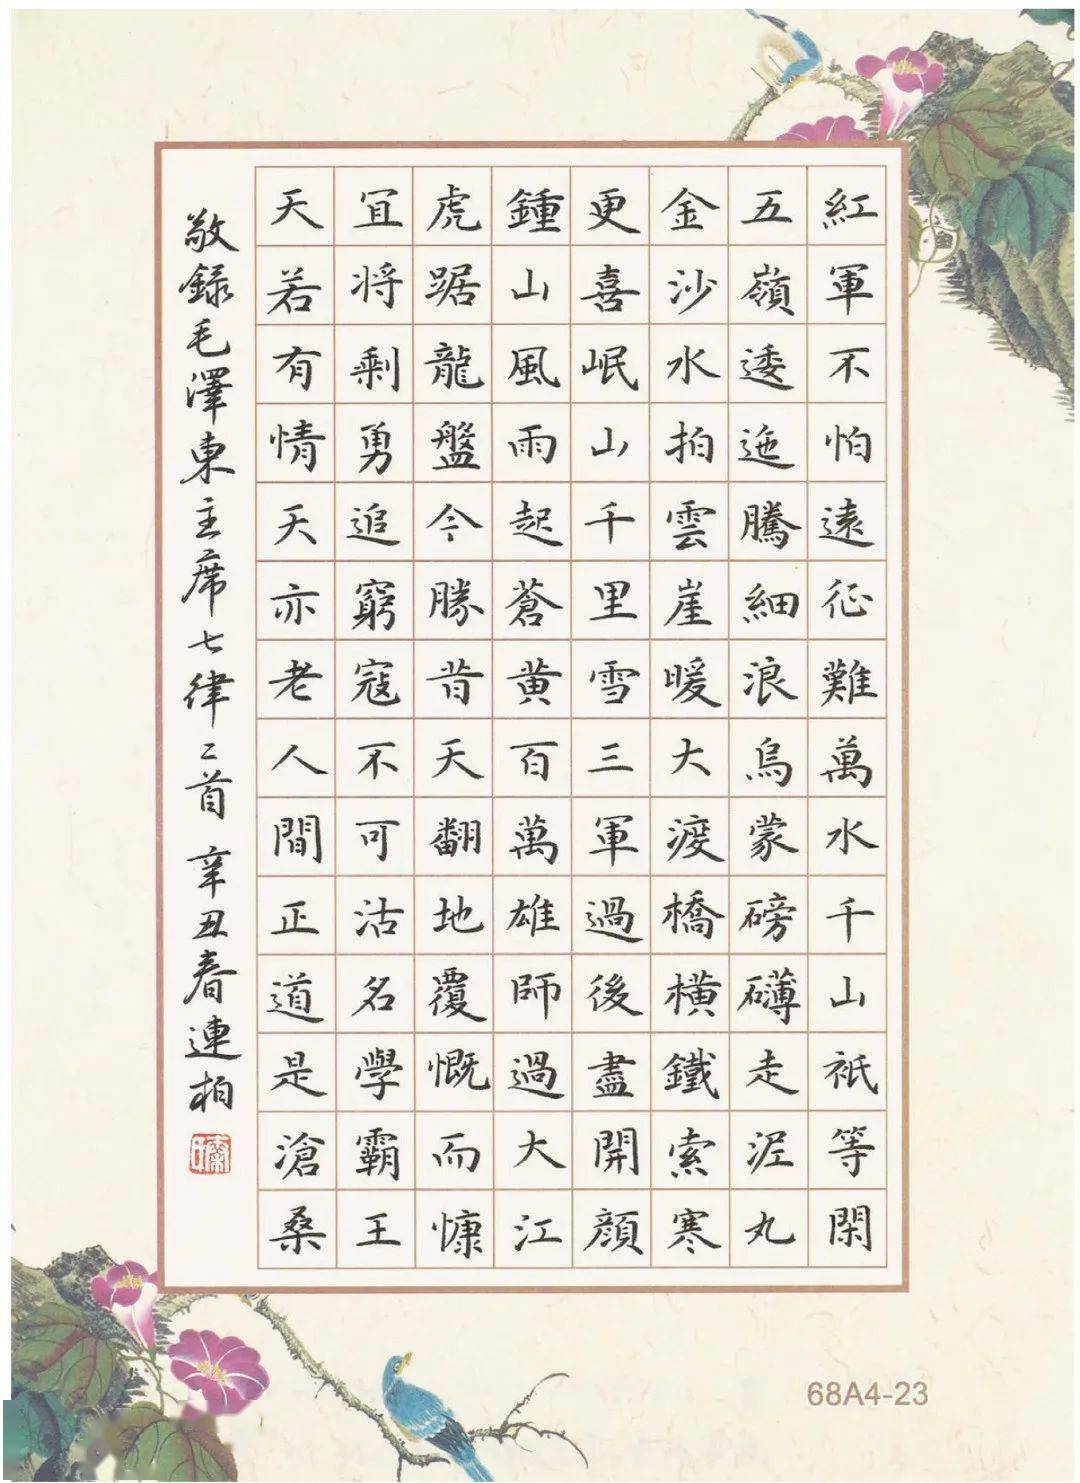 紅軍不怕遠征難萬水千山衹等閑
五嶺逶迤騰細浪烏蒙磅礴走泥丸
金沙水拍雲崖暖大渡橋橫鐵索寒
更喜岷山千里雪三軍過後盡開顔
鍾山風雨起蒼黄百萬雄師過大江
虎踞龍盤今勝昔天翻地覆慨而慷
宜將剩勇追窮寇不可沽名學霸王
天若有情天亦老人間正道是滄桑
敬録毛澤東主席七律二首 辛丑春連柏
68A4-23